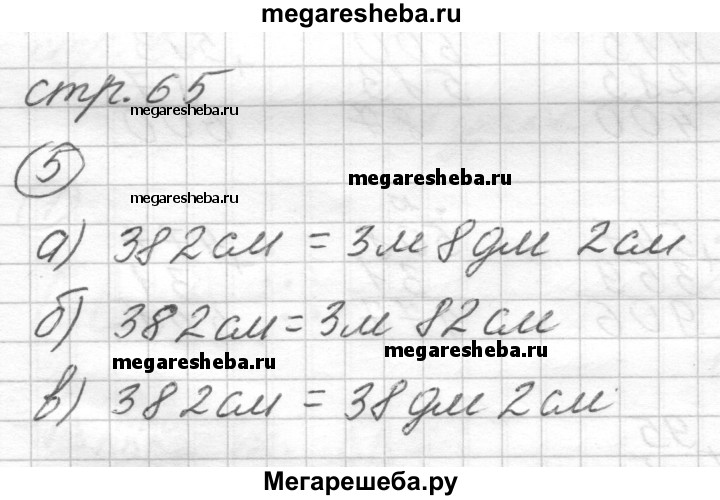 megaresheba.ru
стр. 65
megaresheba.ru
5
megaresheba.ru
megaresheba.ru
а) 382см = 3м 8дм 2см
б) 382см = 3м 82см
megaresheba.ru
megaresheba.ru
в) 382см = 38дм 2см
Мегарешеба.ру